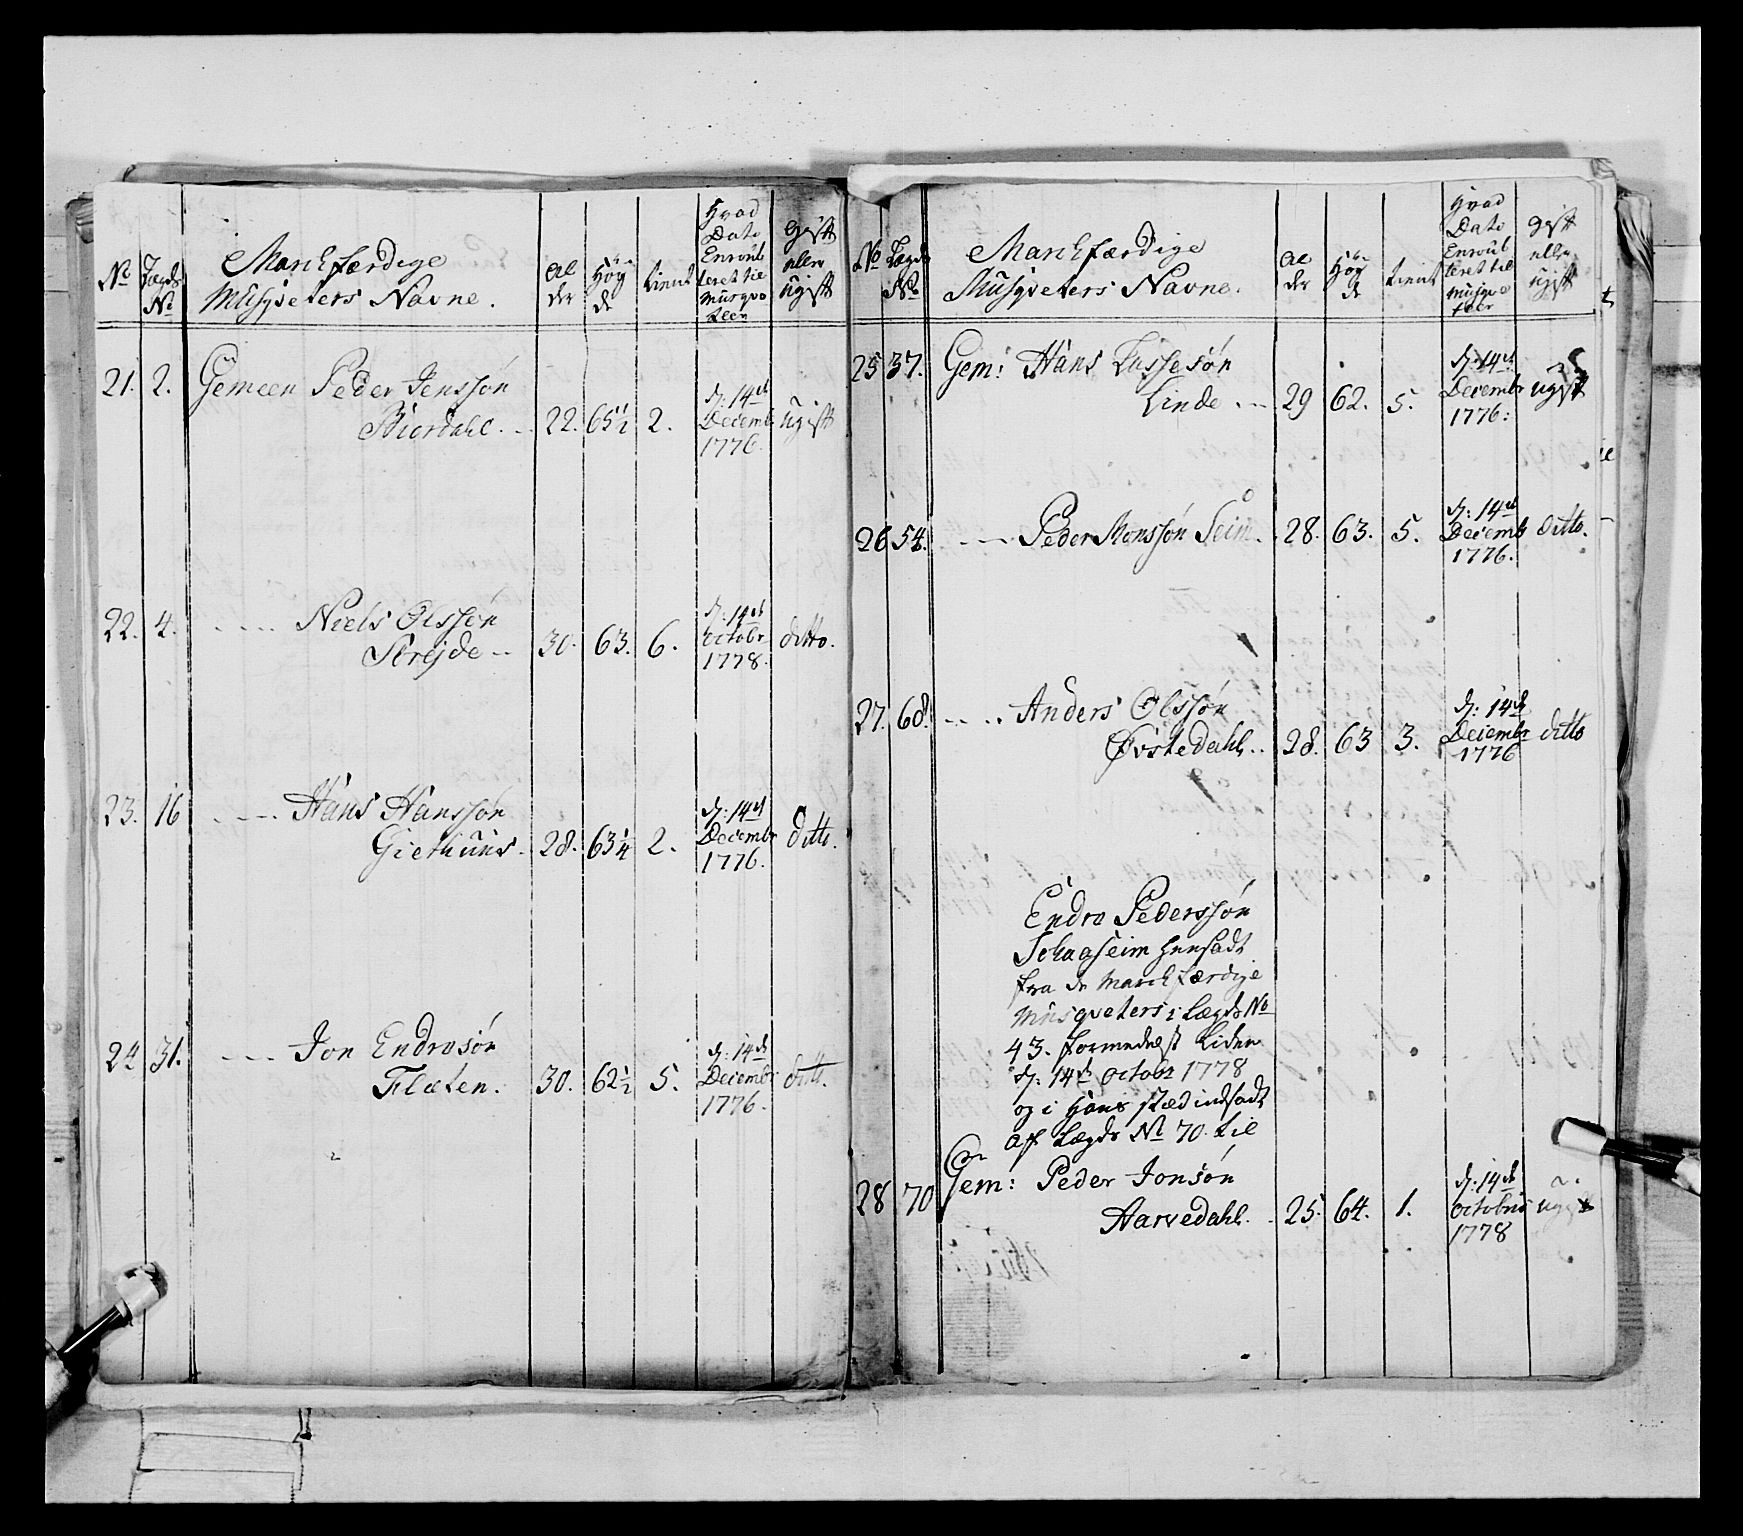 No
Lægds
No
Marchfærdige
Musqveters Navne.
Al
der
Høy
de
tient
Hvad
Dato
Enroul
leret til
Musqve
teer
Gift
eller
ugift
21. 2. Gemeen Peder Jenssøn
Biordahl. 22. 65½ 2.
d: 14de
Decembr
1776.
ugift
22. 4. Niels Olssøn
30. 63. 6.
d: 14de
octobr
1778.
ditto.
23. 16 Hans Hanssøn
Giethuus. 28. 63¼ 2.
d: 14de
Decembr
1776.
ditto.
24 31. Jon Endresøn
Flaten. 30. 62½ 5.
d: 14de
Decembr
1776.
ditto.
No
Lægds
No
Marchfærdige
Musqveters Navne.
Al
der
Høy
de
tient
Hvad
Dato
Enroul
leret til
Musqve
teer
gift
eller
ugift
25 37. Gem: Hans Lassesøn
Linde 29 62. 5.
d: 14de
Decembr
1776:
ugift
26 54. Peder Monssøn Seim. 28. 63. 5.
d: 14de
Decembr
1776.
ditto.
27. 68. Anders Olssøn
Øvstedahl. 28. 63 3.
d: 14de
Decembr
1776
ditto
Endre Pederssøn
Schaaseim hensadt
fra de Marchfærdige
Musqveters i Lægds No
43. formedelst Liden
d: 14de octobr 1778
og i Hans stæd indsadt
af Lægds No 70. til
28 70 Gem: Peder Jonsøn
Aarvedahl. 25. 64. 1.
d: 14de
octobris
1778
ugift